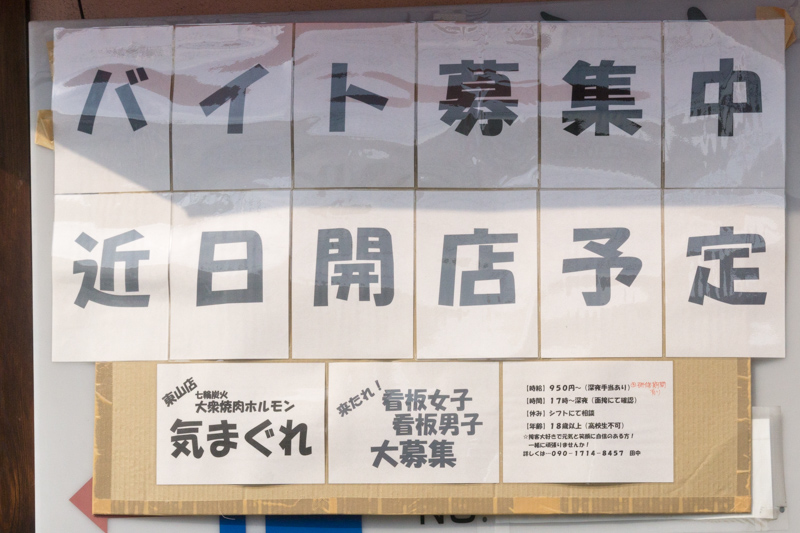 バイト募集中
近日開店予定
東山店
七輪炭火
大衆焼肉ホルモン
気まぐれ
来たれ!
看板女子
看板男子
大募集
【時給】950円～(深夜手当あり)
【時間】17時～深夜(面接にて確認)
【休み】シフトにて相談
【年齢】18歳以上(高校生不可)
☆接客大好きで元気と笑顔に自信のある方!
一緒に頑張りませんか!
詳しくは…090-1714-8457 田中
NO.